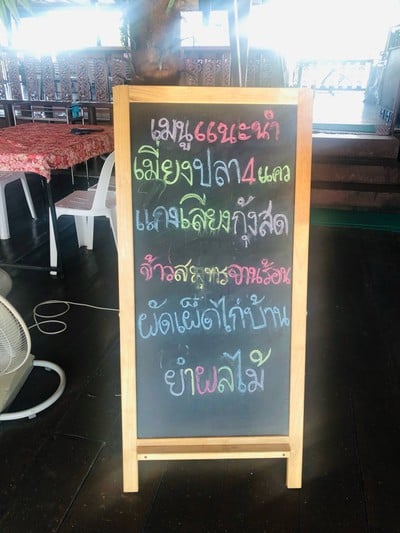 เมนูแนะนำ
เมี่ยงปลา 4 แคว
แกงเลียงกุ้งสด
ข้าวสมุทรจานร้อน
ผัดเผ็ดไก่บ้าน
ยำผลไม้